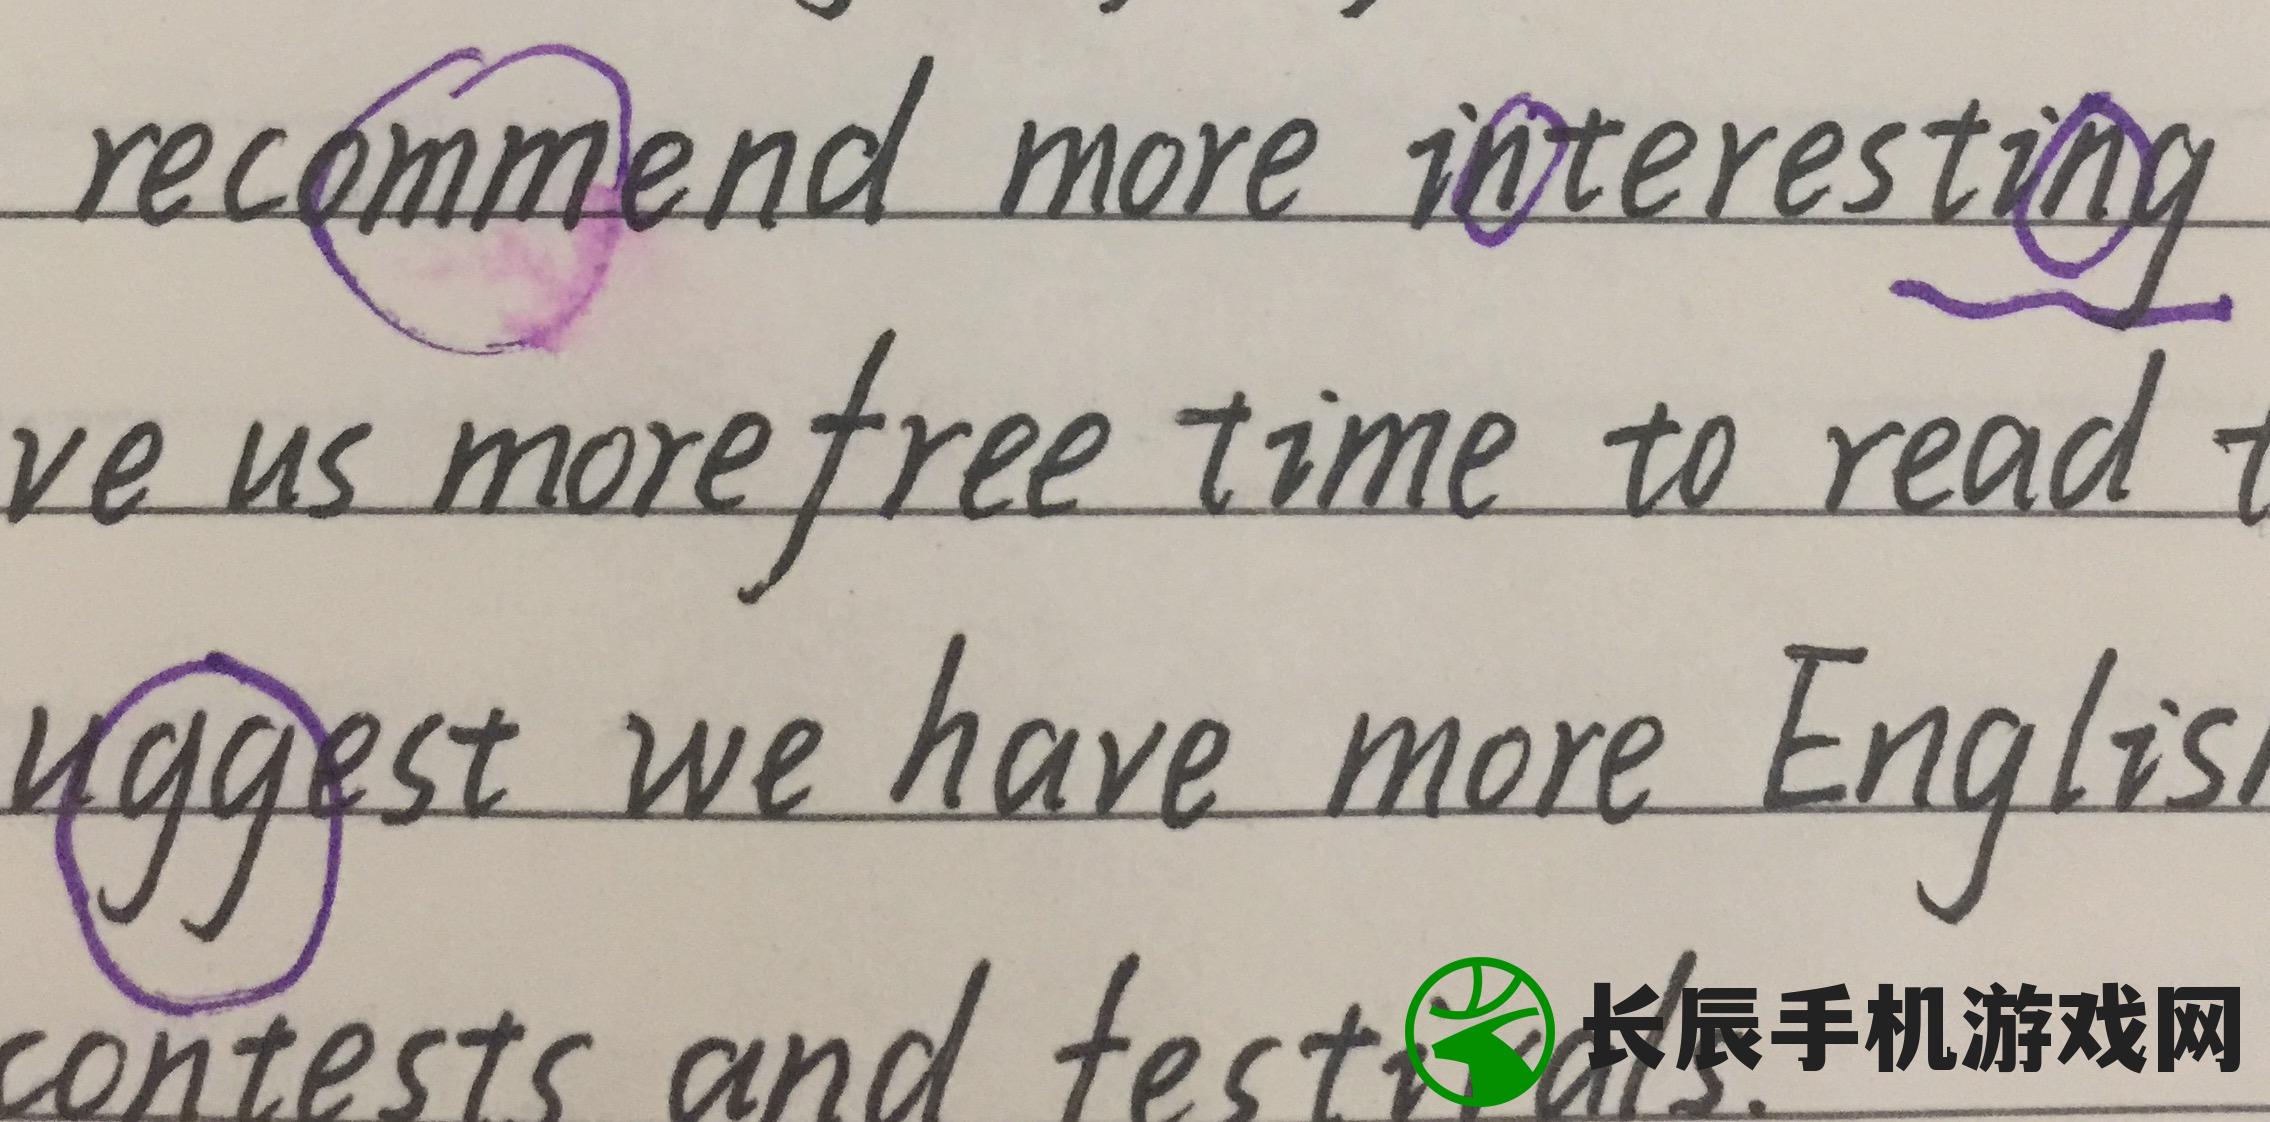 recommend more interesting
ve us more free time to read t
uggest we have more Englis
contests and festivals.
长辰手机游戏网